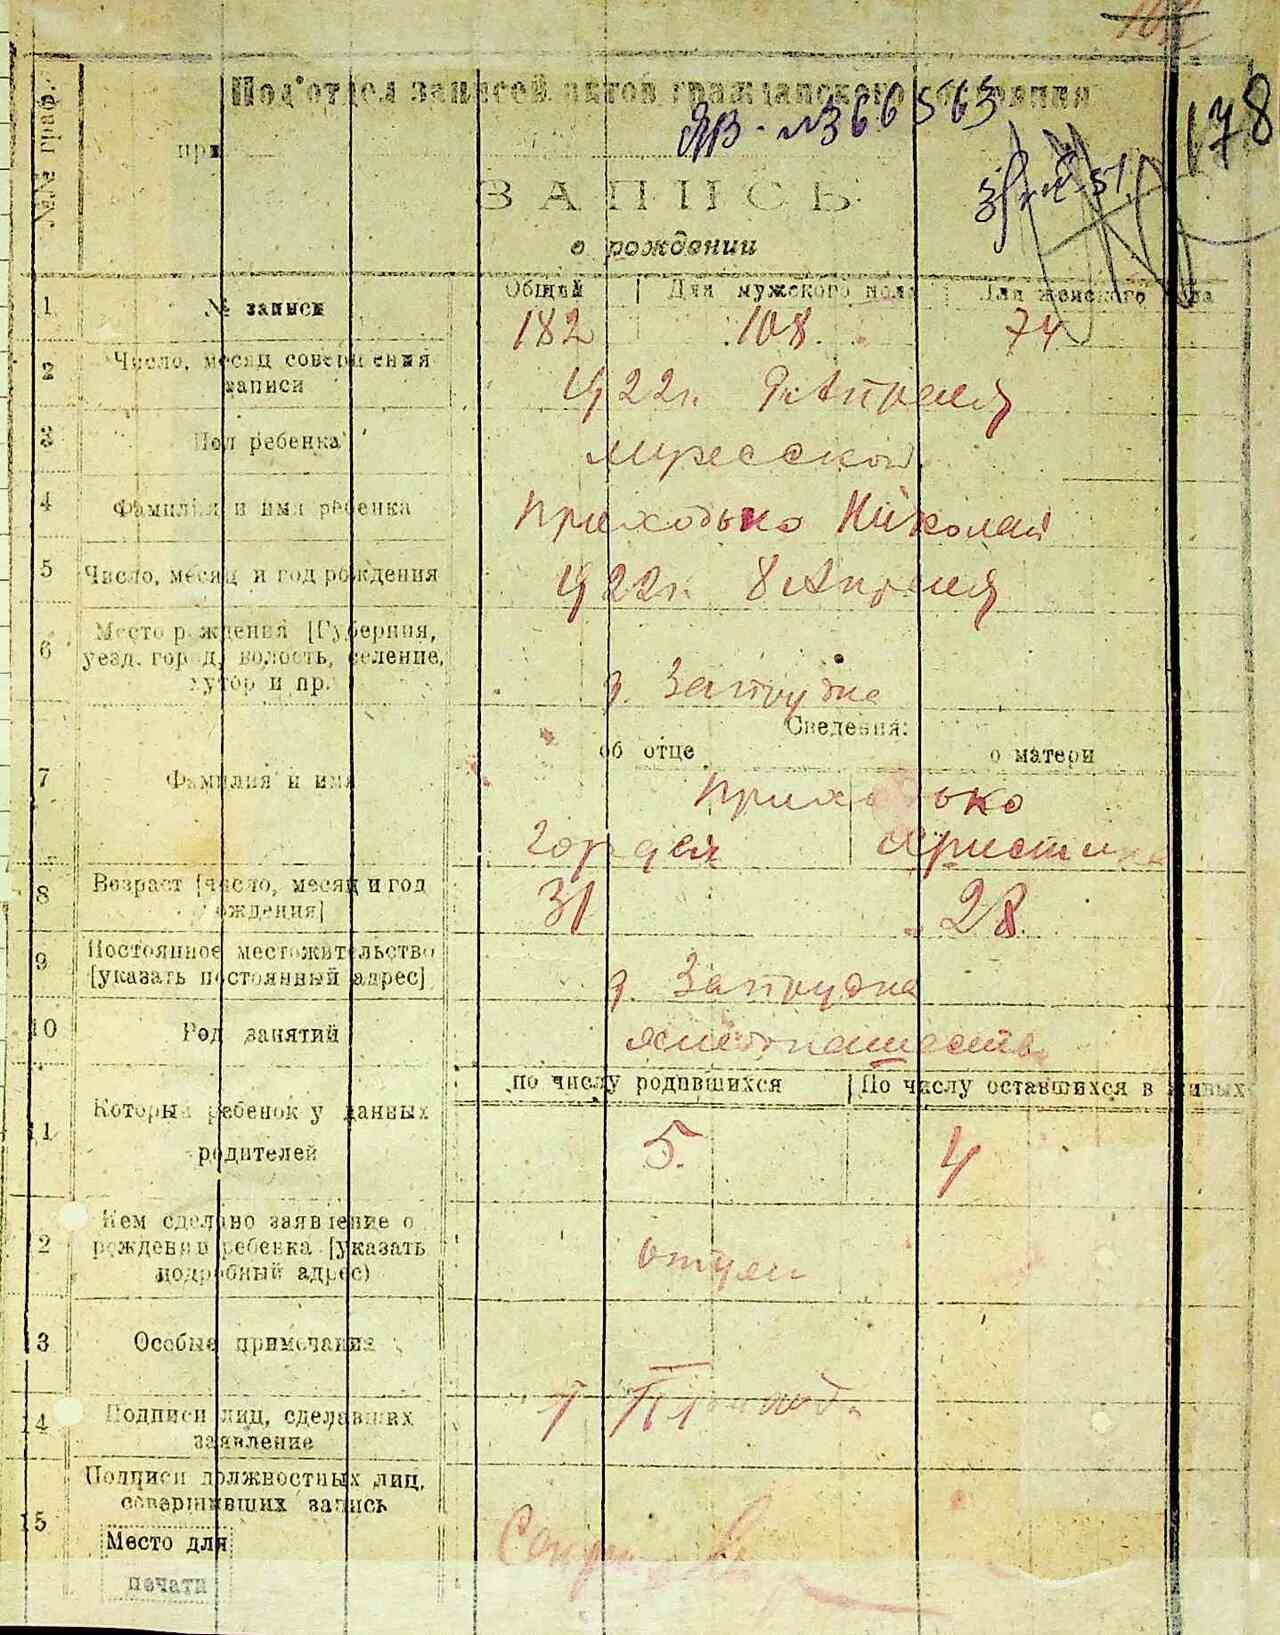 178
№№ граф.
Под'отдел записей актов гражданского состояния
ЯВ-№366563
при
ЗАПИСЬ
о рождении
Общий Для мужского пола Для женского пола
1 № записи 182 108. 74
2 Число, месяц совершения
записи 1922г. 9 Апреля
3 Пол ребенка мужеской
4 Фамилия и имя ребенка Приходько Николай
5 Число, месяц и год рождения 1922г. 8 Апреля
6 Место рождения [Губерния,
уезд, город, волость, селение,
хутор и пр. з. Запрудка
Сведения:
об отце о матери
7 Фамилия и имя Приходько
Гордей Христина
8 Возраст [число, месяц и год
рождения] 31 28.
9 Постоянное местожительство
[указать постоянный адрес] з. Запрудка
10 Род занятий хлебопашество
по числу родившихся По числу оставшихся в живых
11 Который ребенок у данных
родителей 5. 4
12 Кем сделано заявление о
рождении ребенка [указать
подробный адрес) отцем
13 Особые примечания
14 Подписи лиц, сделавших
заявление Г
15 Подписи должностных лиц,
совершивших запись
Место для
печати